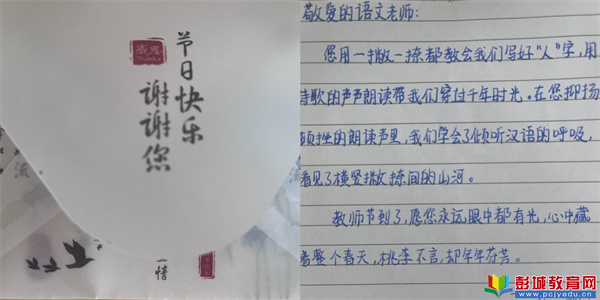 感恩
Thanks
节日快乐
谢谢您
流
一情
敬爱的语文老师：
您用一撇一捺都教会我们写好“人”字，用
诗歌的声声朗读带我们穿过千年时光。在您抑扬
顿挫的朗读声里，我们学会了倾听汉语的呼吸，
看见了横竖撇捺间的山河。
教师节到了，愿您永远眼中都有光，心中藏
着整个春天，桃李不言，却年年芬芳。
彭城教育网
www.pcjyedu.cn